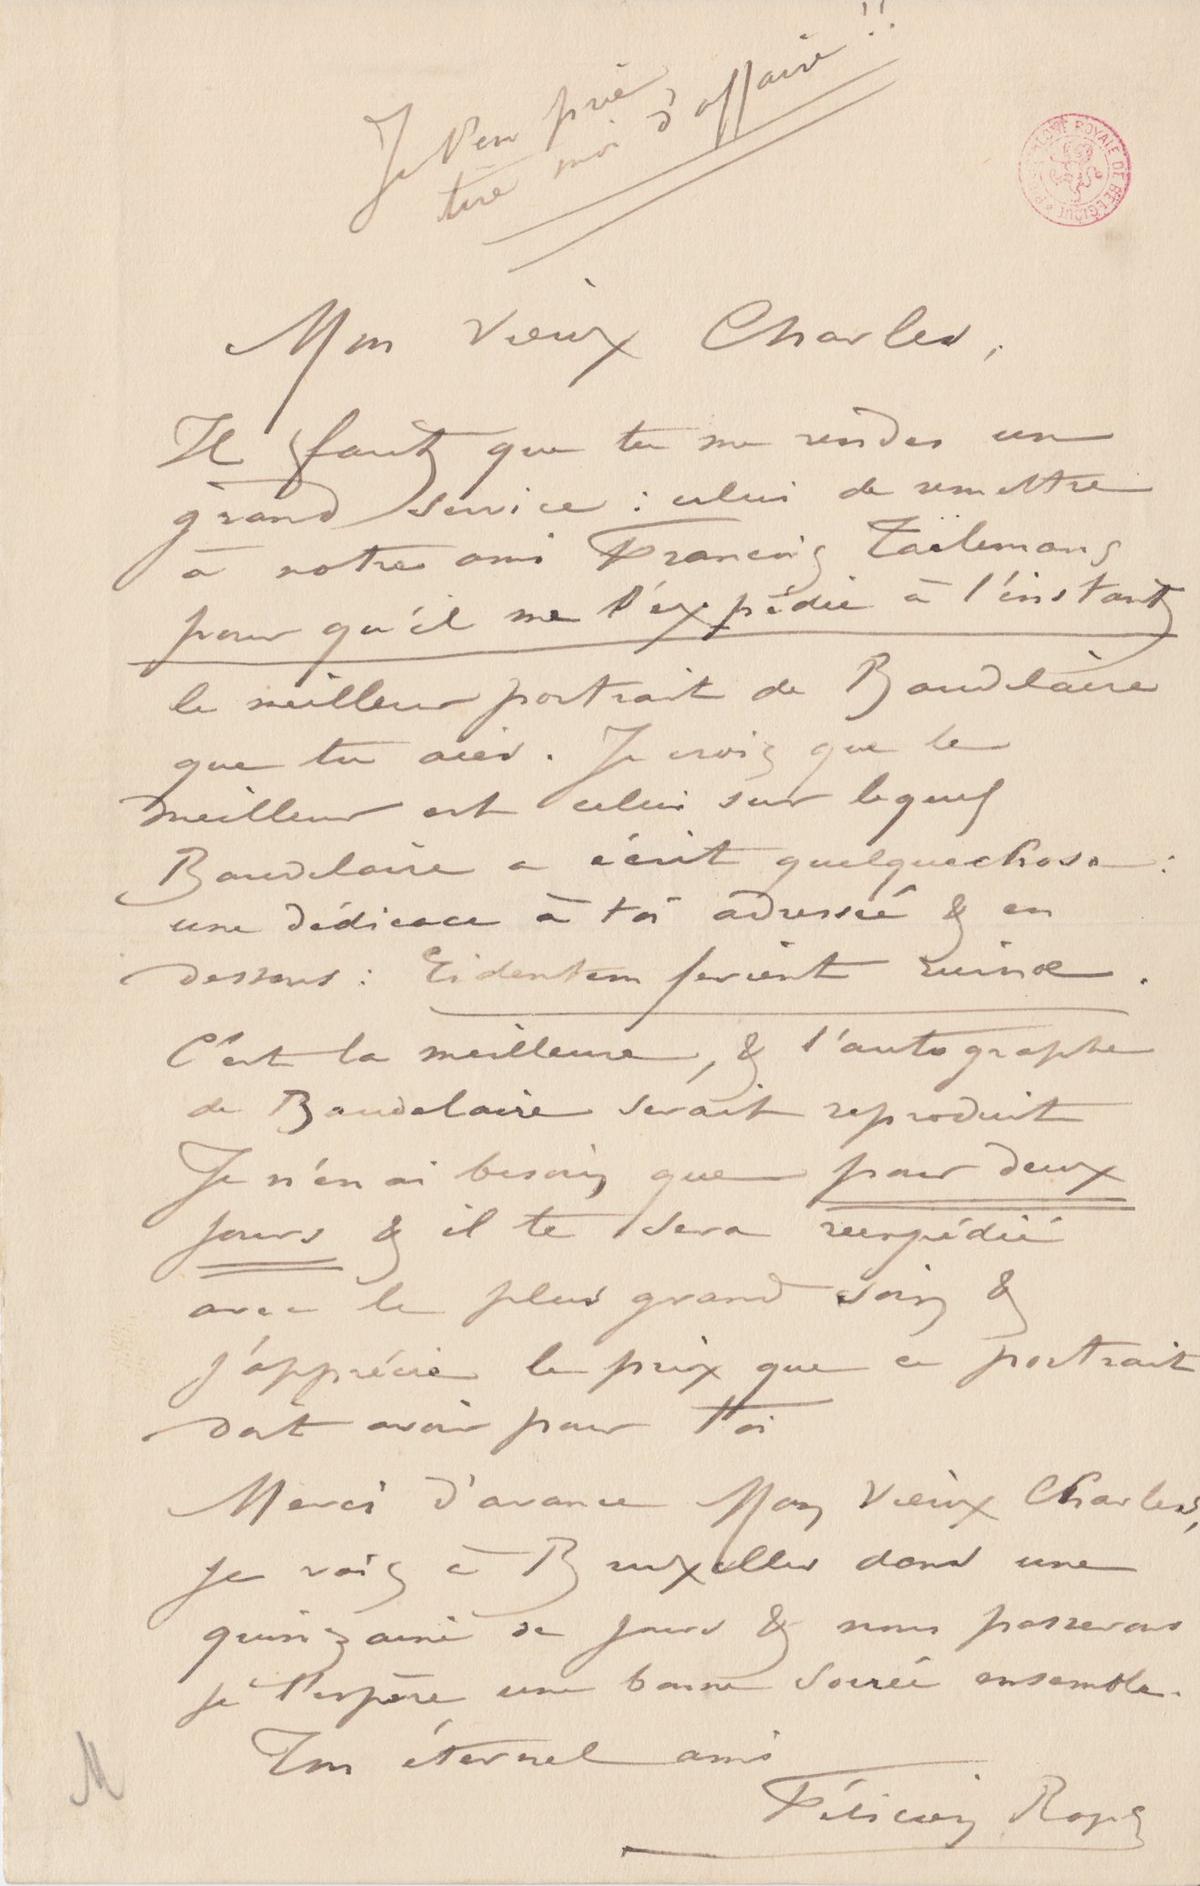 Je t'en prie
tire moi d'affaire !!
BIBLIOTHÈQUE ROYALE DE BELGIQUE
Mon vieux Charles,
Il faut que tu me rendes un
grand service : celui de remettre
à notre ami François Taëlemans
pour qu'il me l'expédie à l'instant
le meilleur portrait de Baudelaire
que tu aies. Je crois que le
meilleur est celui sur lequel
Baudelaire a écrit quelquechose :
une dédicace à toi adressée & en
dessous : Ridentem ferient ruinæ.
C'est la meilleure, & l'autographe
de Baudelaire serait reproduit
Je n'en ai besoin que pour deux
jours & il te sera reexpédié
avec le plus grand soin &
j'apprécie le prix que ce portrait
doit avoir pour toi
Merci d'avance Mon vieux Charles,
je vais à Bruxelles dans une
quinzaine de jours & nous passerons
je l'espère une bonne soirée ensemble.
Ton éternel ami
Félicien Rops
M